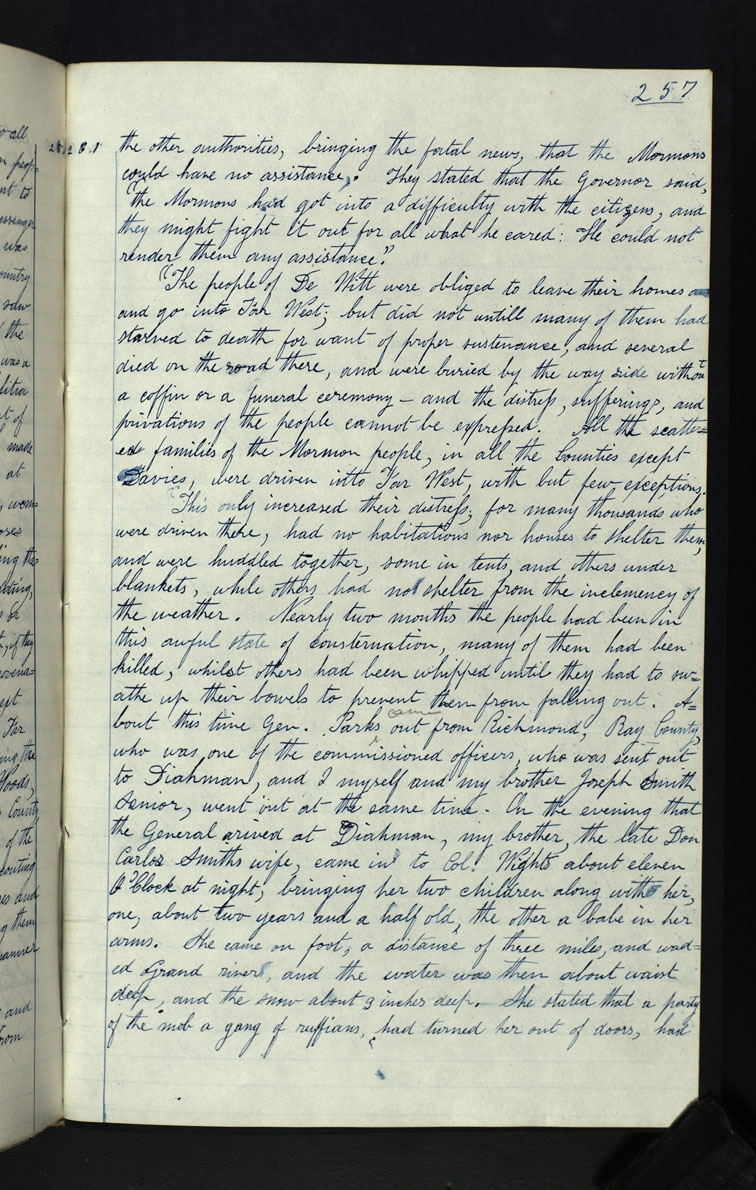 257
the other authorities, bringing the fatal news, that the Mormons
could have no assistance. They stated that the Governor said,
"the Mormons had got into a difficulty with the citizens, and
they might fight it out for all what he cared: He could not
render them any assistance."
"The people of De Witt were obliged to leave their homes
and go into Far West; but did not untill many of them had
starved to death for want of proper sustenance, and several
died on the road there, and were buried by the way side without
a coffin or a funeral ceremony — and the distress, sufferings, and
privations of the people cannot be expressed. All the scatter=
ed families of the Mormon people, in all the Counties except
Davies, were driven into Far West, with but few exceptions.
"This only increased their distress, for many thousands who
were driven there, had no habitations nor houses to shelter them,
and were huddled together, some in tents, and others under
blankets, while others had no shelter from the inclemency of
the weather. Nearly two months the people had been in
this awful state of consternation, many of them had been
killed, whilst others had been whipped until they had to sw=
athe up their bowels to prevent them from falling out. A=
bout this time Gen. Parks came out from Richmond, Ray County,
who was one of the commissioned officers, who was sent out
to Diahman, and I myself and my brother Joseph Smith
Senior, went out at the same time. On the evening that
the General arived at Diahman, my brother, the late Don
Carlos Smiths wife, came in to Col. Wights about eleven
O'Clock at night, bringing her two children along with her,
one, about two years and a half old, the other a babe in her
arms. She came on foot, a distance of three miles, and wad=
ed Grand river, and the water was then about waist
deep, and the snow about 3 inches deep. She stated that a party
of the mob a gang of ruffians, had turned her out of doors, had